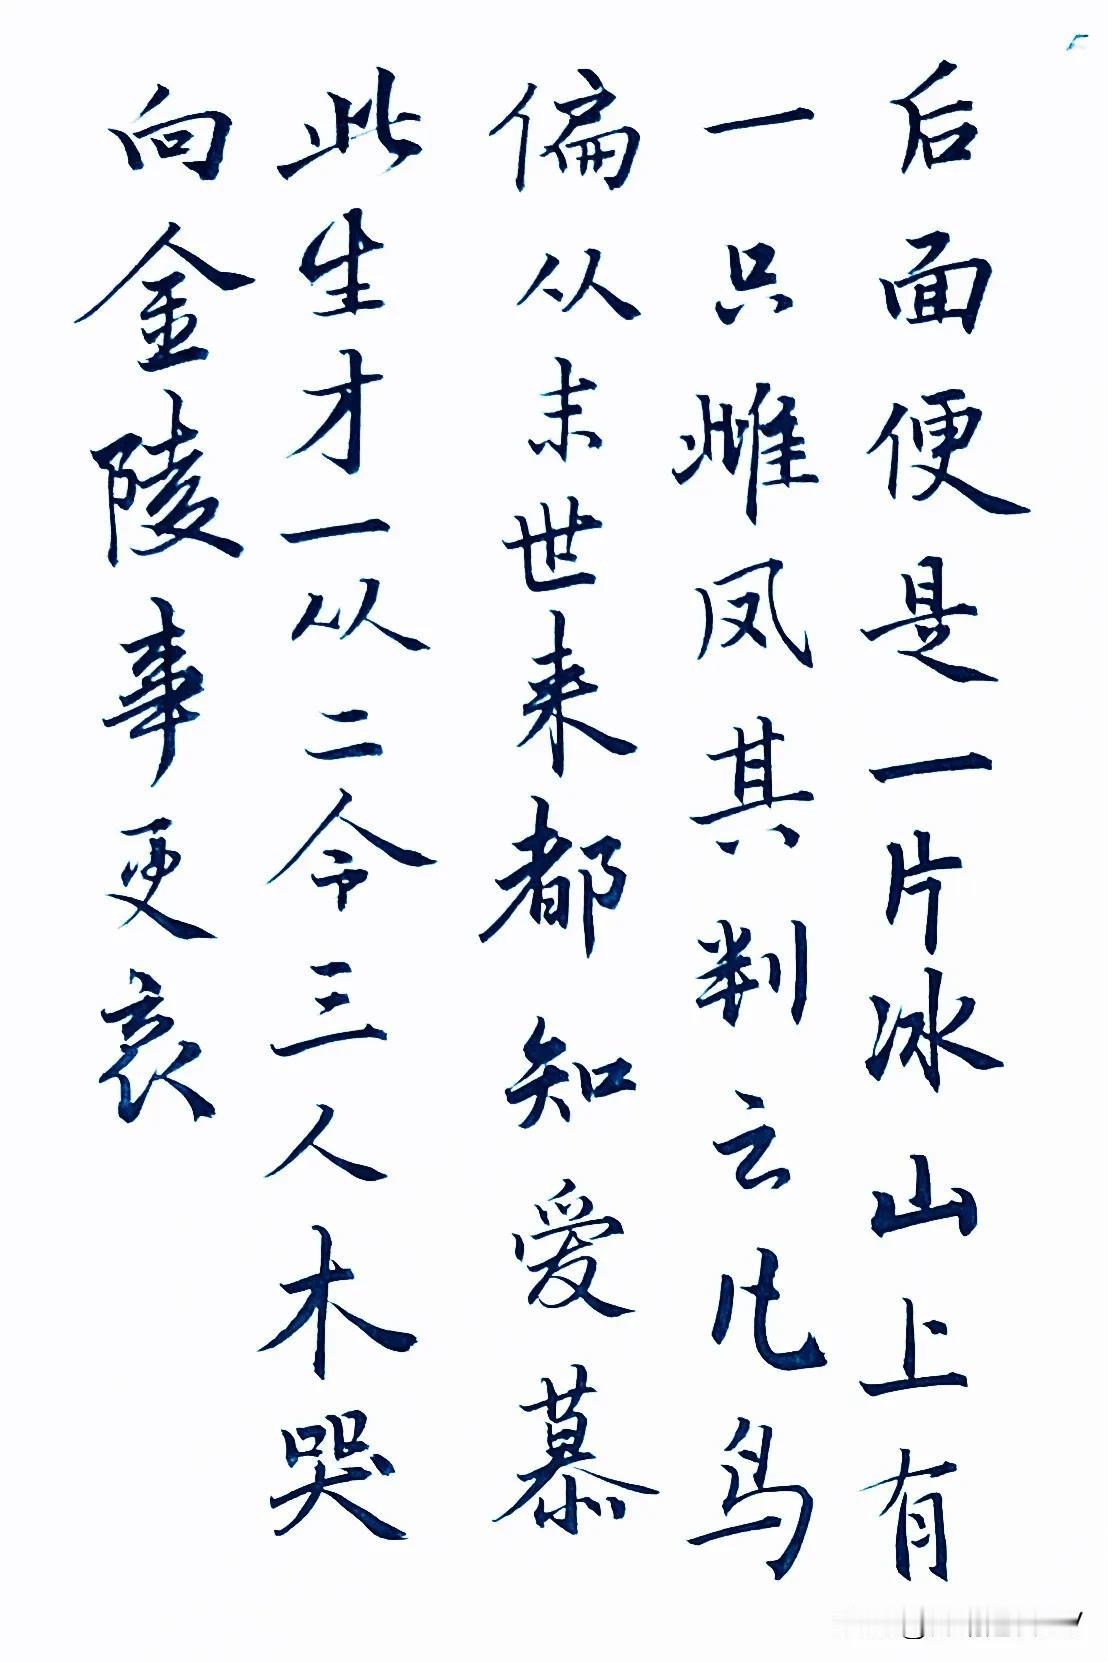 后面便是一片冰山上有
一只雌凤其判云凡鸟
偏从末世来都知爱慕
此生才一从二令三人木哭
向金陵事更哀